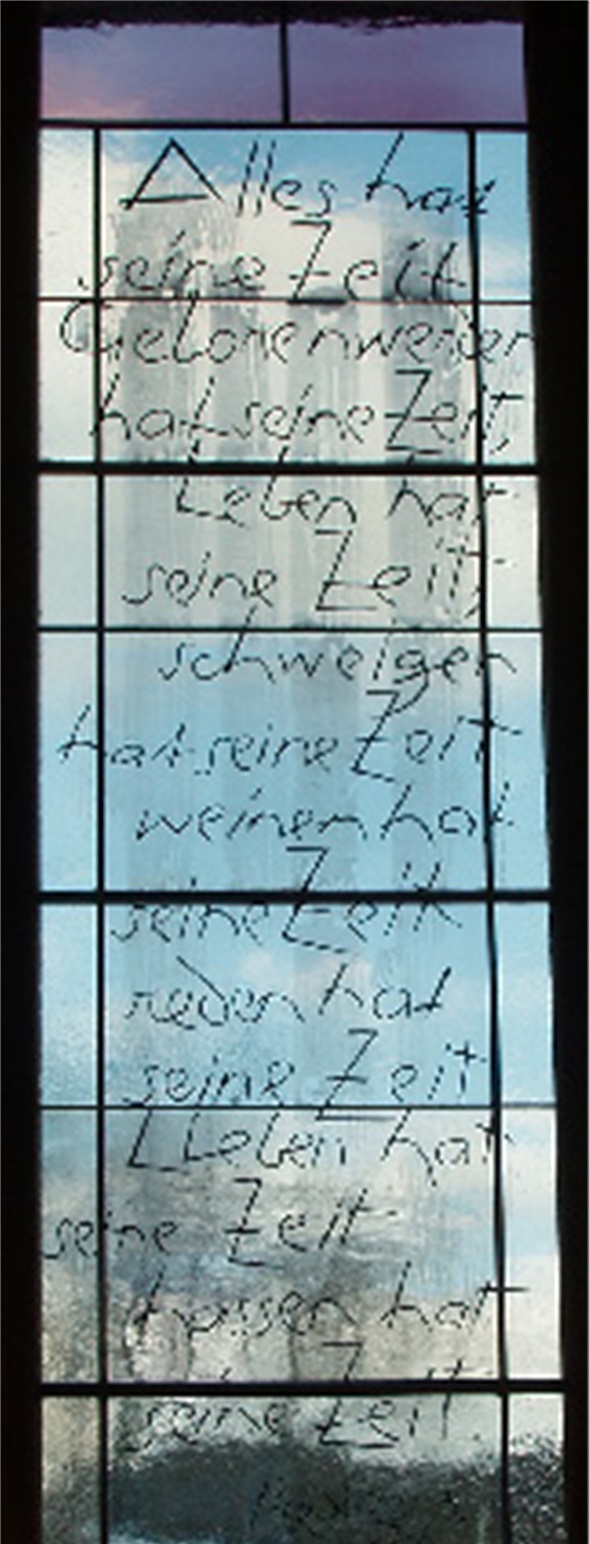 Alles hat
seine Zeit
Geborenwerden
hat seine Zeit,
Leben hat
seine Zeit,
schweigen
hat seine Zeit
weinen hat
seine Zeit
reden hat
seine Zeit
Lieben hat
seine Zeit
hassen hat
seine Zeit.